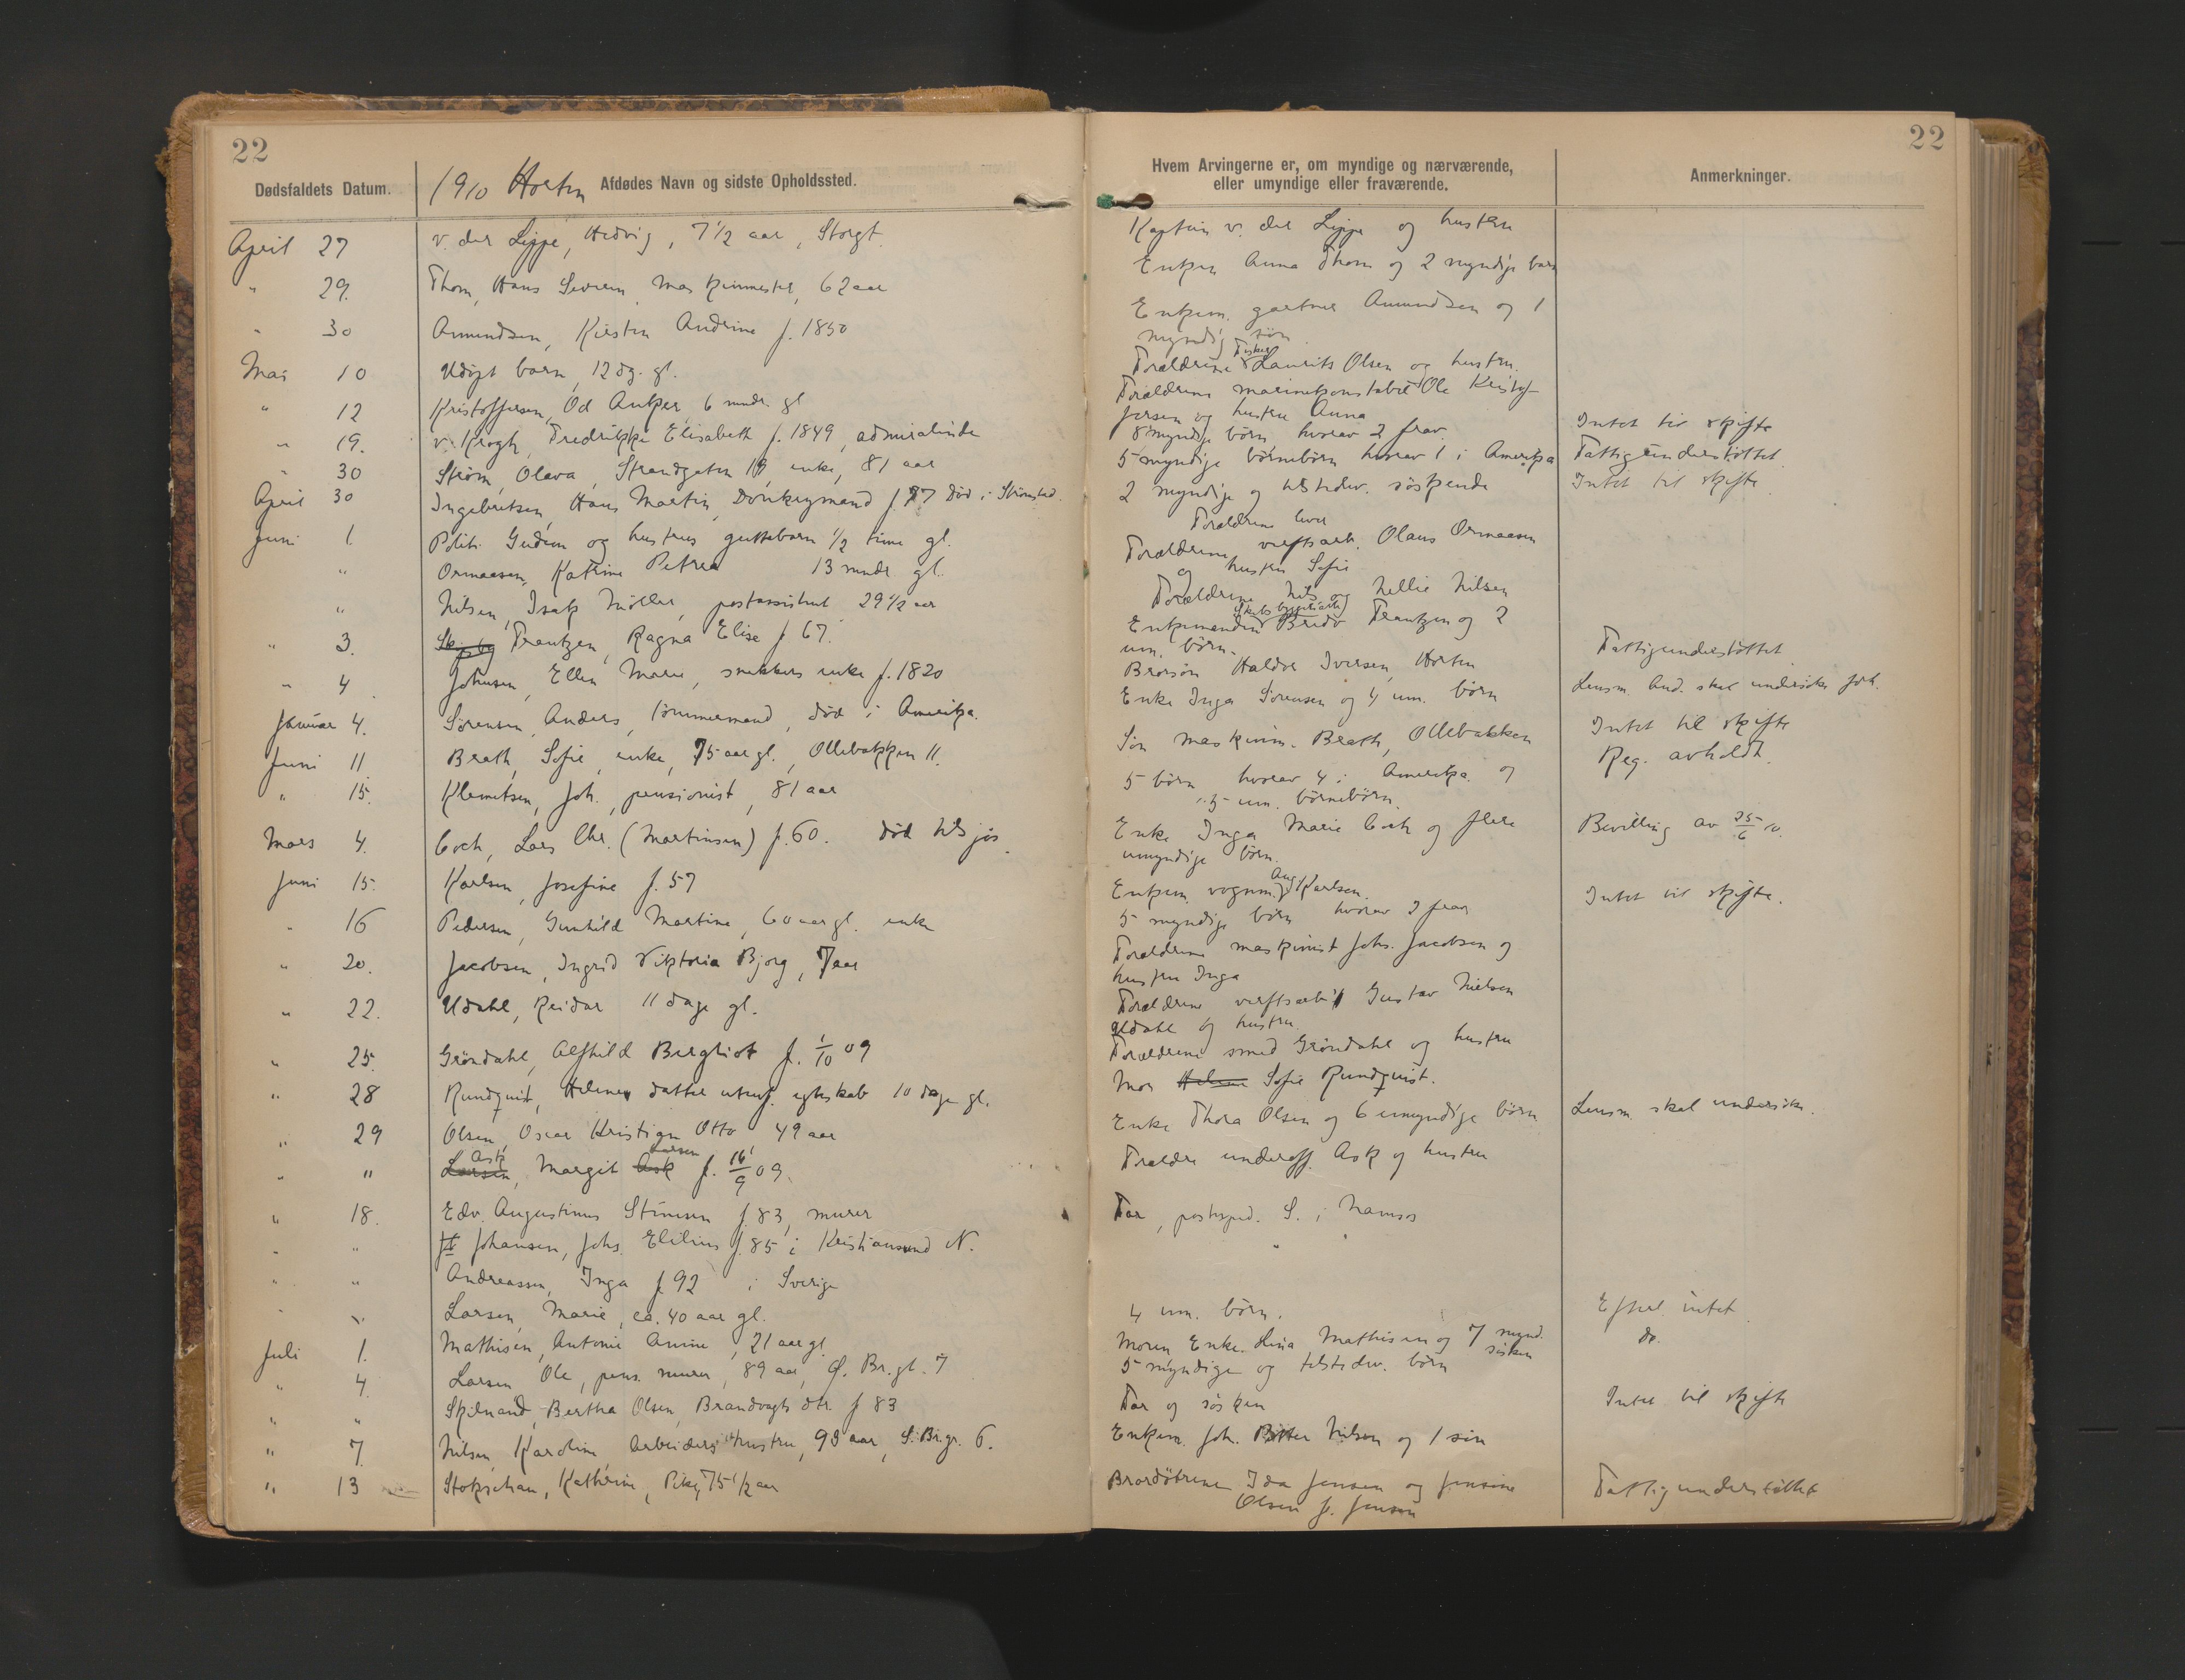 22
Dødsfaldets Datum.
1910 Horten
Afdødes Navn og sidste Opholdssted.
April 27 v. der Lippe, Hedvig, 7 1/2 aar, Storgt.
" 29. Thom, Hans Severin, maskinmester, 62 aar
" 30 Amundsen, Kirsten Andrine f. 1850
Mai 10 Udøpt barn, 12 dg. gl.
" 12 Kristoffersen, Od Anker, 6 mndr. gl
" 19. v. Krogh, Fredrikke Elisabeth f. 1849, admiralinde
" 30 Strøm, Olava, Strandgaten 19, enke, 81 aar
April 30 Ingebretsen, Hans Martin, Donkeymand f. 87 død i Strømstad.
Juni 1. Politi Gudem og hustrus guttebarn 1/2 time gl.
" Ormaasen, Katrine Petrea 13 mndr. gl.
" Nilsen, Isak Møller, postassistent 29 1/2 aar
" 3. Frantzen, Ragna Elise f. 67.
" 4. Johnsen, Ellen Marie, snekkers enke f. 1820
Januar 4. Sørensen, Anders, tømmermand, død i Amerika.
Juni 11 Brath, Sofie, enke, 75 aar gl., Ollebakken 11.
" 15. Klemetsen, Joh., pensionist, 81 aar
Mars 4. Coch, Lars Chr. (Martinsen) f. 60. død tilsjøs.
Juni 15. Karlsen, Josefine f. 57
" 16 Pedersen, Gunhild Martine, 60 aar gl. enke
" 20. Jacobsen, Ingrid Viktoria Bjorg, 7 aar
" 22. Udahl, Reidar 11 dage gl.
" 25. Grøndahl, Alfhild Bergliot f. 1/10 09
" 28 Rundquist, Helene, datter utenf. egteskab 10 dage gl.
" 29 Olsen, Oscar Kristian Otto, 49 aar
" " Larsen Ask, Margit Ask Larsen f. 16/9 09.
" 18. Edv. Augustinus Stimesen f. 83, murer
" " Johansen, Johs. Elilius f. 85 i Kristiansund N.
" " Andreassen, Inga f. 92 i Sverige
" " Larsen, Marie, ca. 40 aar gl.
Juli 1. Mathisen, Antonie Amine, 21 aar gl.
" 4. Larsen, Ole, pens. murer, 89 aar, Ø. Br.gt. 7
" " Skilnand, Bertha Olsen, Brandvagts dtr. f 83
" 7. Nilsen, Karoline Arbeiders hustru, 98 aar, S. Br.gr. 6.
" 13 Stokschau, Kathrine, Pike, 75 1/2 aar
22
Hvem Arvingerne er, om myndige og nærværende,
eller umyndige eller fraværende.
Anmerkninger.
Kaptein v. der Lippe og hustru
Enken Anna Thom og 2 myndige barn
Enkem. gartner Amundsen og 1
myndig søn.
Forældrene Fisker Laurits Olsen og hustru.
Forældrene marinekonstabel Ole Kristof-
fersen og hustru Anna
8 myndige børn, hvorav 2 frav. Intet til skifte
5 myndige børnebørn hvorav 1 i Amerika Fattigunderstøttet
2 myndige og tilstedev. søskende Intet til skifte
Forældrene lever
Forældrene, verftsarb. Olaus Ormaasen
og hustru Sofie
Forældrene Nils og Nellie Nilsen
Enkemanden Skibsbyggeriarb. Bredo Frantzen og 2
um. børn.
Brorsøn Haldor Iversen, Horten Fattigunderstøttet
Enke Inga Sørensen og 4 um. børn Lensm. And. skal undersøke forh.
Søn maskinm. Brath, Ollebakken Intet til skifte
5 børn hvorav 4 i Amerika og Reg. avholdt.
5 um. børnebørn.
Enke Inga Marie Coch og flere Bevilling av 25/6 10.
umyndige børn.
Enkem. vognm. Aug. Karlsen. Intet til skifte.
5 myndige børn hvorav 2 frav
Forældrene maskinist Johs. Jacobsen og
hustru Inga
Forældrene verftsarb. Gustav Nielsen
Udahl og hustru.
Forældrene smed Grøndahl og hustru
Mor Helene Sofie Rundquist.
Enke Thora Olsen og 6 umyndige børn Lensm. skal undersøke.
Forældre underoff. Ask og hustru
Far, postexped. S. i Namsos
"
4 um. børn. Efterl. intet
Moren Enke Lina Mathisen og 7 mynd. søsken do.
5 myndige og tilstedev. børn
Far og søsken Intet til skifte
Enkem. Joh. Petter Nilsen og 1 søn
Brordøtrene Ida Jensen og Jensine Fattigunderstøttet
Olsen f. Jensen